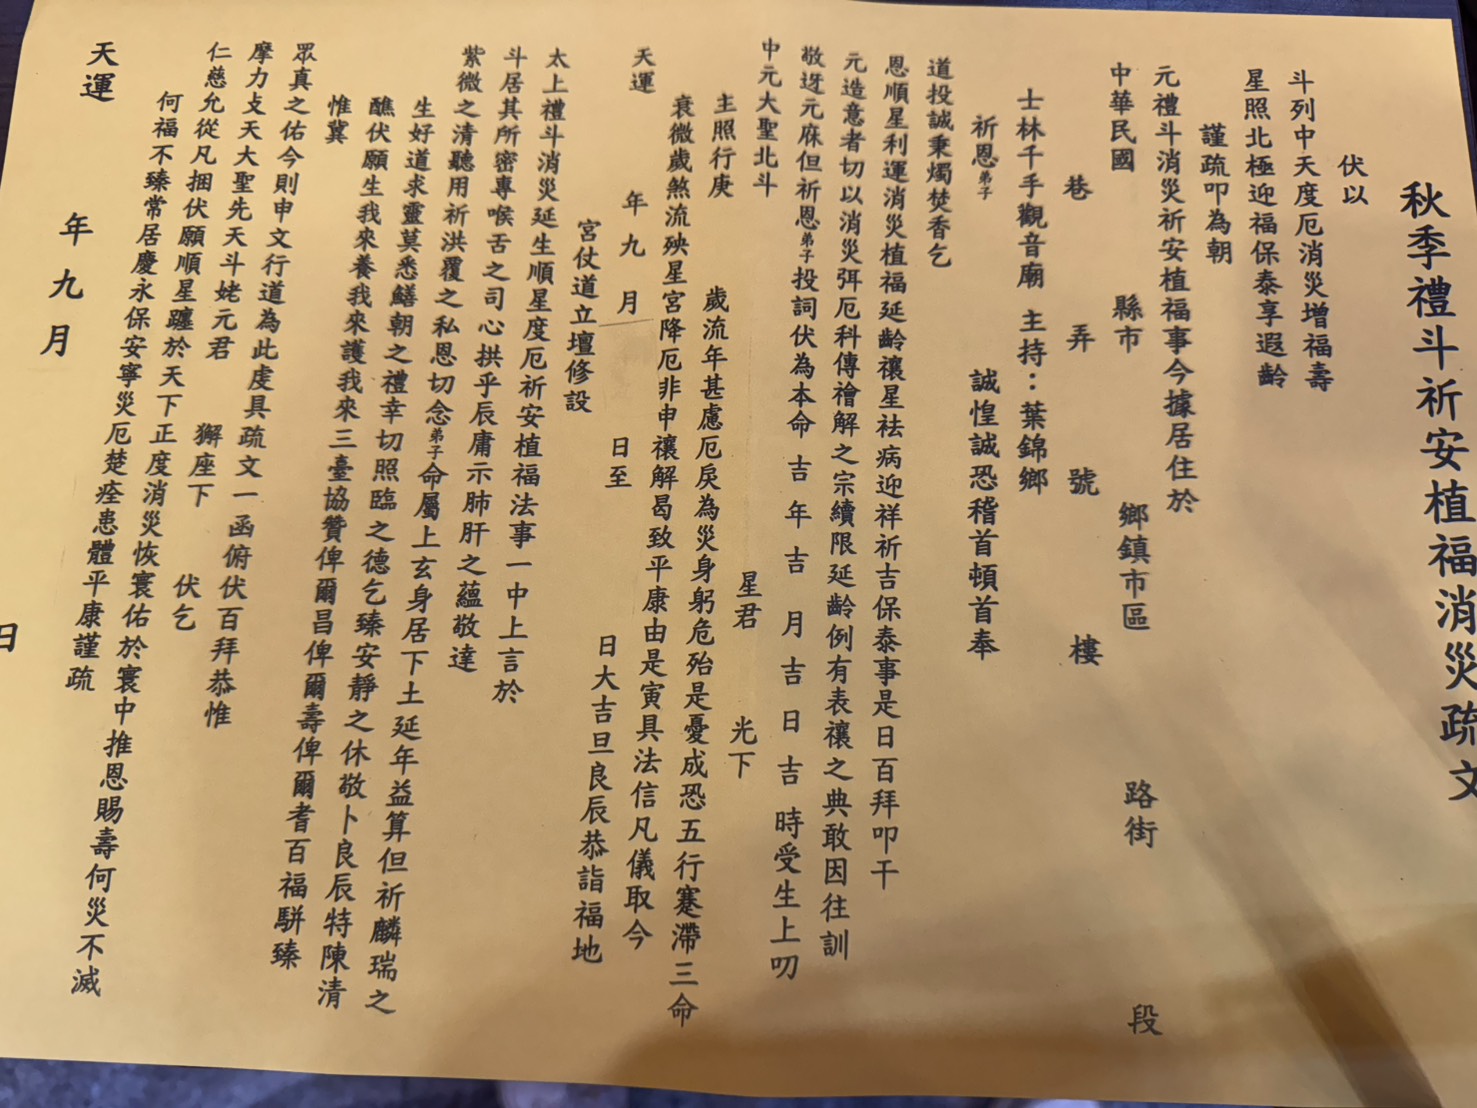 秋季禮斗祈安植福消災疏文
伏以
斗列中天度厄消災增福壽
星照北極迎福保泰享遐齡
謹疏叩為朝
元禮斗消災祈安植福事今據居住於
中華民國 縣市 鄉鎮市區 路街 段
巷 弄 號 樓
士林千手觀音廟 主持：葉錦鄉
祈恩弟子 誠惶誠恐稽首頓首奉
道投誠秉燭焚香乞
恩順星利運消災植福延齡禳星袪病迎祥祈吉保泰事是日百拜叩干
元造意者切以消災弭厄科傳禬解之宗續限延齡例有表禳之典敢因往訓
敬迓元庥但祈恩弟子投詞伏為本命 吉 年 吉 月 吉 日 吉 時受生上叨
中元大聖北斗 星君 光下
主照行庚 歲流年甚慮厄戾為災身躬危殆是憂成恐五行蹇滯三命
衰微歲煞流殃星宮降厄非申禳解曷致平康由是寅具法信凡儀取今
天運 年 九 月 日至 日大吉旦良辰恭詣福地
宮仗道立壇修設
太上禮斗消災延生順星度厄祈安植福法事一中上言於
斗居其所密專喉舌之司心拱乎辰庸示肺肝之蘊敬達
紫微之清聽用祈洪覆之私恩切念弟子命屬上玄身居下土延年益算但祈麟瑞之
生好道求靈莫悉鱔朝之禮幸切照臨之德乞臻安靜之休敬卜良辰特陳清
醮伏願生我來養我來護我來三臺協贊俾爾昌俾爾壽俾爾耆百福駢臻
惟冀
眾真之佑今則申文行道為此虔具疏文一函俯伏百拜恭惟
摩力攴天大聖先天斗姥元君 獬座下 伏乞
仁慈允從凡捆伏願順星躔於天下正度消災恢寰佑於寰中推恩賜壽何災不滅
何福不臻常居慶永保安寧災厄楚痊患體平康謹疏
天運 年 九 月 日